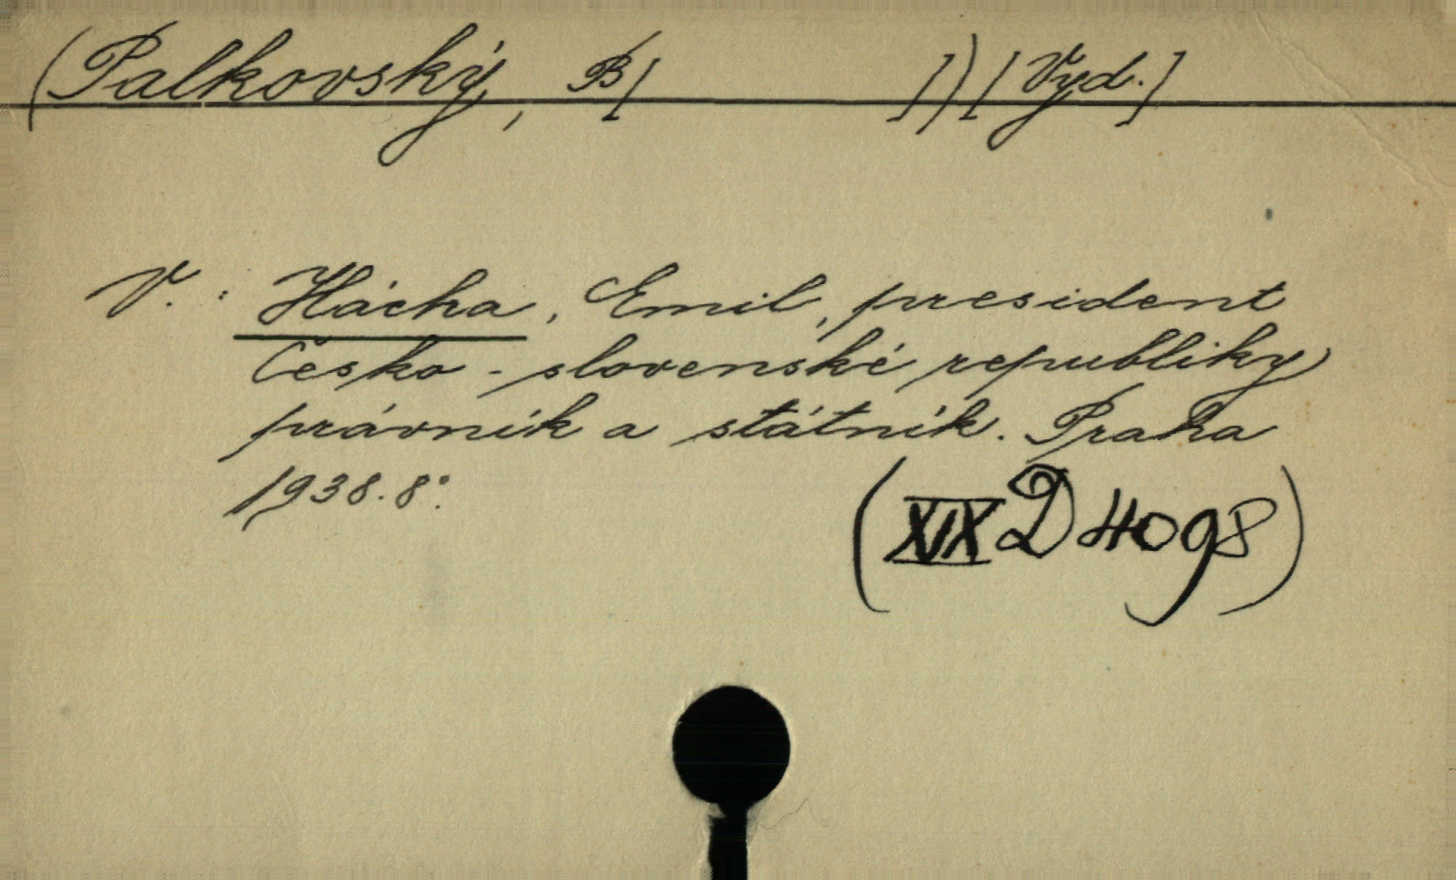 (Palkovský, B[ ])[Vyd.]
V.: Hácha, Emil, president
Česko-slovenské republiky
právník a státník. Praha
1938. 8°.
(XIX D 4098)